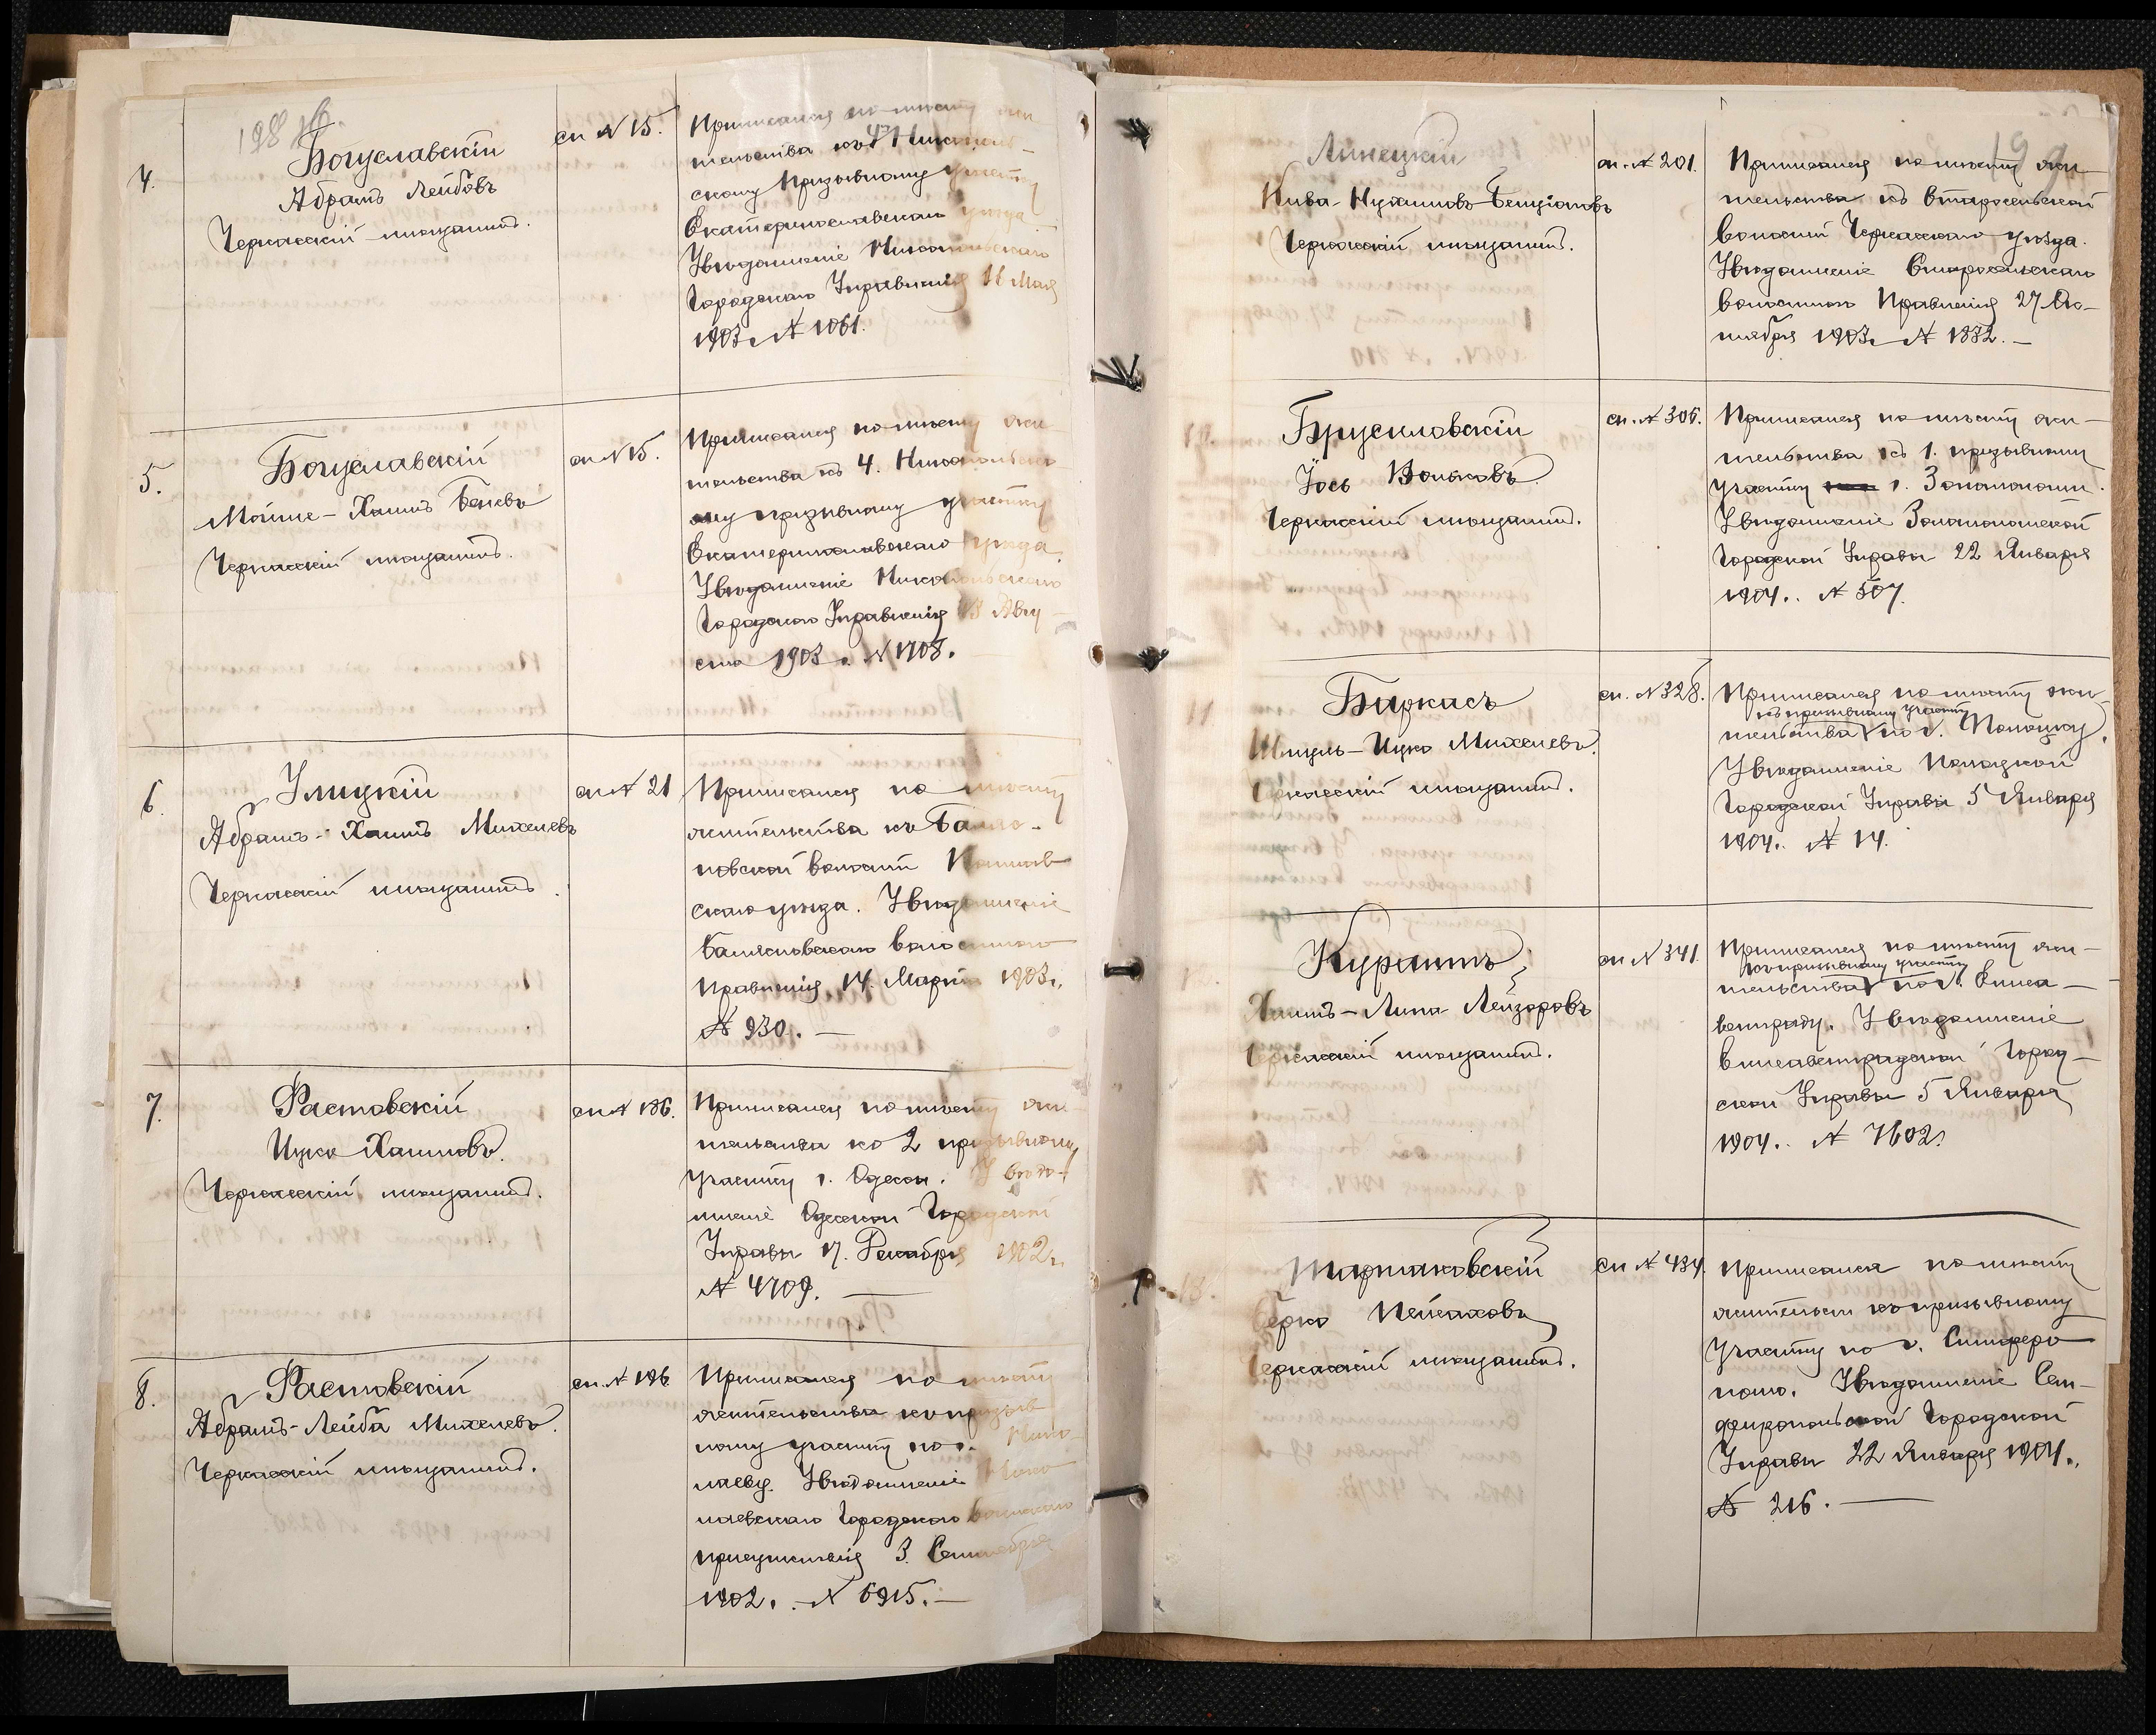 198 об.
4.
Богуславскій
Абрамъ Лейбовъ
Черкасскій мѣщанинъ.
сп № 15.
Приписался по мѣсту жи-
тельства къ 4му Никополь-
скому призывному участку
Екатеринославскаго уѣзда
Увѣдомленіе Никопольскаго
Городского Управленія 11 Мая
1903 г. № 1061.
5.
Богуславскій
Мойше-Хаимъ Беневъ
Черкасскій мѣщанинъ.
сп № 15.
Приписался по мѣсту жи-
тельства къ 4. Никопольско
му призывному участку
Екатеринославскаго уѣзда.
Увѣдомленіе Никопольскаго
Городского Управленія 13 Авгу-
ста 1903 г. № 1708.
6.
Улицкій
Абрамъ-Хаимъ Михелевъ
Черкасскій мѣщанинъ.
сп № 21
Приписался по мѣсту
жительства къ
новской волости
скаго уѣзда. Увѣдомленіе
волостного
Правленія 14. Марта 1903 г.
№ 930.
7.
Растовскій
Ицко Хаимовъ.
Черкасскій мѣщанинъ.
сп № 196.
Приписался по мѣсту жи-
тельства ко 2 призывному
участку г. Одессы. Увѣдо-
мленіе Одесской Городской
Управы 17. Декабря 1902 г.
№ 4709.
8.
Растовскій
Абрамъ-Лейба Михелевъ.
Черкасскій мѣщанинъ.
сп. № 196
Приписался по мѣсту
жительства къ призыв
ному участку по г. Нико-
лаеву. Увѣдомленіе Нико
лаевскаго Городского воинскаго
присутствія 3. Сентября
1902 г. № 6915.
199
Линецкій
Кива-Нухимовъ-Бенціоновъ
Черкасскій мѣщанинъ.
сп. № 201.
Приписался по мѣсту жи-
тельства къ Старосельской
волости Черкасскаго уѣзда.
Увѣдомленіе Старосельскаго
волостного Правленія 27 Ок-
тября 1903 г. № 1832.
10.
Брусиловскій
Іось Вольковъ
Черкасскій мѣщанинъ.
сп. № 306.
Приписался по мѣсту жи-
тельства къ 1. призывному
участку г. Золотоноши.
Увѣдомленіе Золотоношской
Городской Управы 22 Января
1904 г. № 507.
11
Биркисъ
Шмуль-Ицко Михелевъ.
Черкасскій мѣщанинъ.
сп. № 328.
Приписался по мѣсту жи-
къ призывному участку
тельства по г. Полоцку.
Увѣдомленіе Полоцкой
Городской Управы 5 Января
1904 г. № 14.
Курпитъ
Хаимъ-Липа Лейзоровъ
Черкасскій мѣщанинъ.
сп № 341.
Приписался по мѣсту жи-
къ призывному участку
тельства по г. Елиса-
ветграду. Увѣдомленіе
Елисаветградской Город-
ской Управы 5 Января
1904 г. № 7602.
13.
Тартаковскій
Берко Пейсаховъ
Черкасскій мѣщанинъ.
сп № 434.
Приписался по мѣсту
жительст къ призывному
участку по г. Симферо
полю. Увѣдомленіе Сим-
феропольской Городской
Управы 22 Января 1904 г.
№ 216.